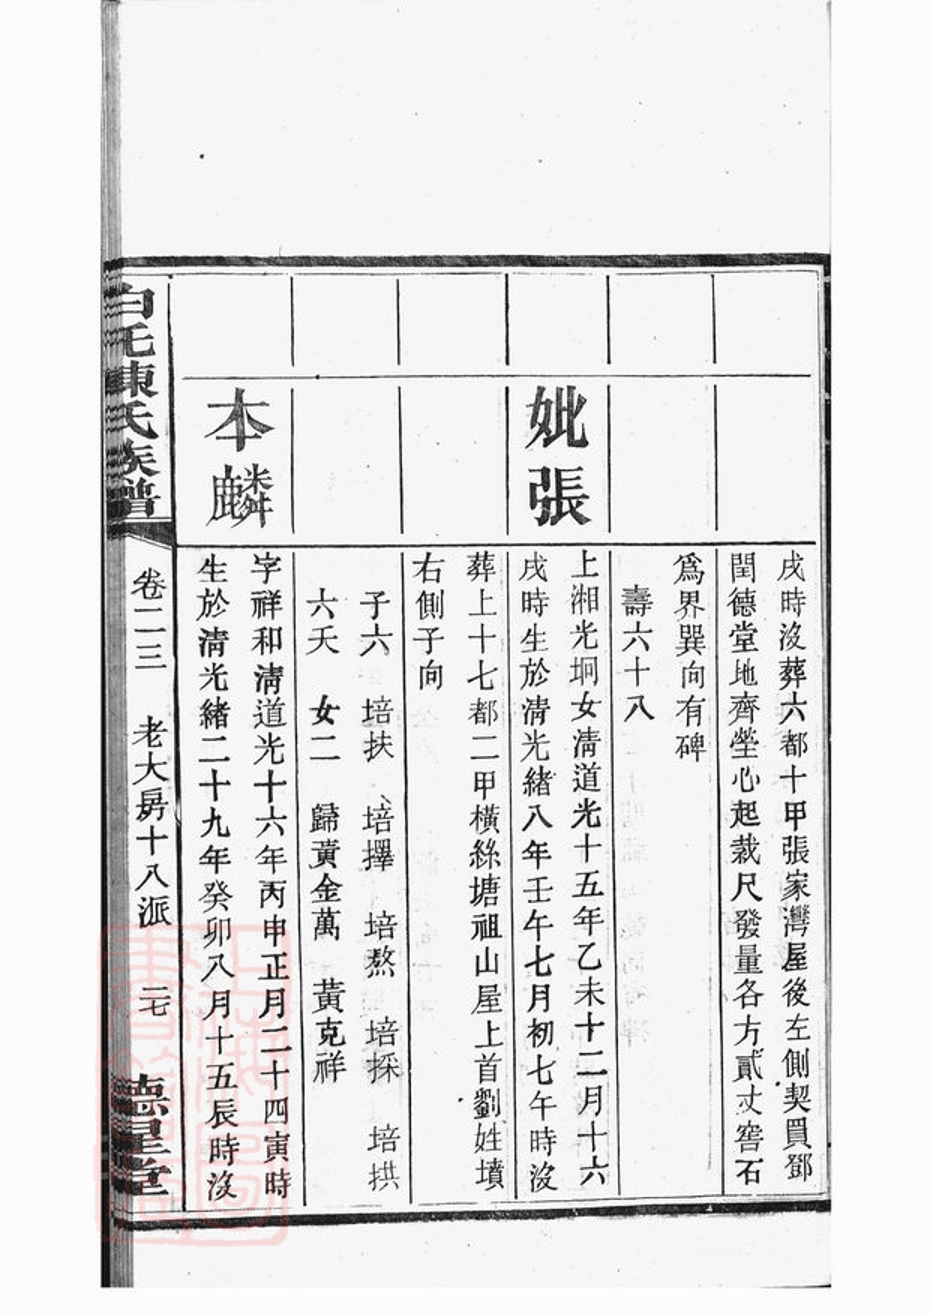 戌時沒葬六都十甲張家灣屋後左側契買鄧
閏德堂地齊塋心起裁尺發量各方貳丈窖石
為界巽向有碑
壽六十八
妣張
上湘光垌女清道光十五年乙未十二月十六
戌時生於清光緒八年壬午七月初七午時沒
葬上十七都二甲橫絲塘祖山屋上首劉姓墳
右側子向
子六 培扶 培擇 培熬 培採 培拱
六夭 女二 歸黃金萬 黃克祥
本麟
字祥和清道光十六年丙申正月二十四寅時
生於清光緒二十九年癸卯八月十五辰時沒
白毛陳氏族譜 卷二三 老大房十八派 二七 德星堂